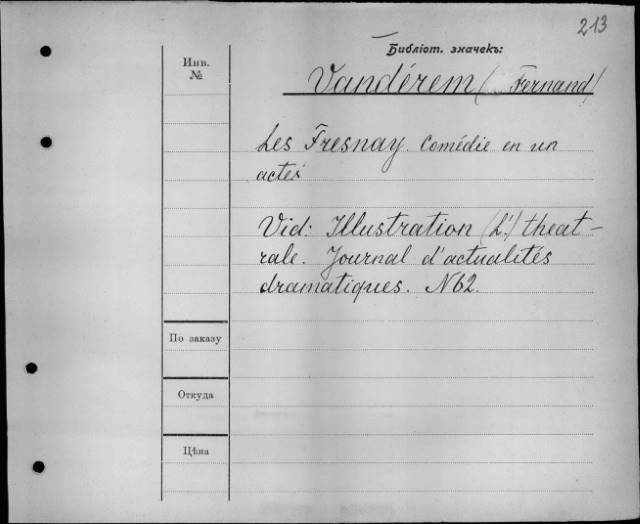 213
Библіот. значекъ:
Инв.
№
Vandérem (Fernand)
Les Fresnay. Comédie en un
actes
Vid: Illustration (L'.) theat-
rale. Journal d'actualités
dramatiques. N62.
По заказу
Откуда
Цѣна